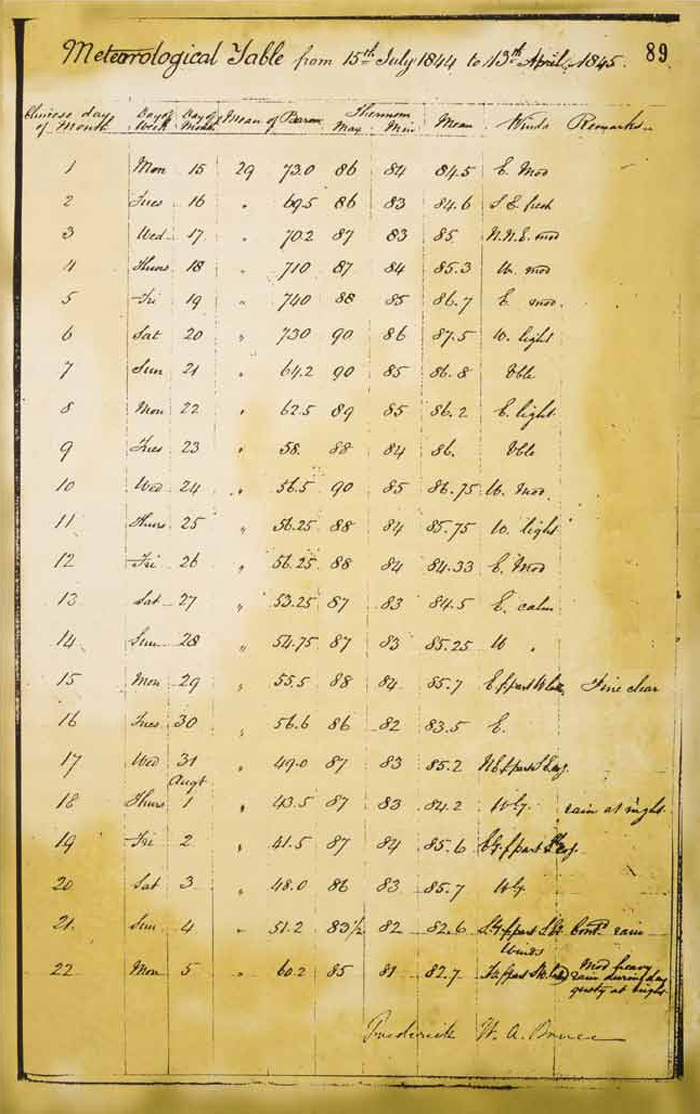 89
Meteorological Table from 15th July 1844 to 13th April 1845.
Chinese day of Month Day of Week Day of Month Mean of Barom Thermom Max Min Mean Winds Remarks
1 Mon 15 29 73.0 86 84 84.5 E. Mod
2 Tues 16 " 69.5 86 83 84.6 S.E. fresh
3 Wed 17 " 70.2 87 83 85 N.N.E. mod
4 Thurs 18 " 710 87 84 85.3 W. mod
5 Fri 19 " 740 88 85 86.7 E. mod.
6 Sat 20 " 730 90 86 87.5 W. light
7 Sun 21 " 64.2 90 85 86.8 Vble
8 Mon 22 " 62.5 89 85 86.2 E. light
9 Tues 23 " 58. 88 84 86. Vble
10 Wed 24 " 56.5 90 85 86.75 W. Mod.
11 Thurs 25 " 56.25 88 84 85.75 W. light
12 Fri 26 " 56.25 88 84 84.33 E. Mod
13 Sat 27 " 53.25 87 83 84.5 E. calm
14 Sun 28 " 54.75 87 83 85.25 W "
15 Mon 29 " 55.5 88 84 85.7 Fine clear
16 Tues 30 " 56.6 86 82 83.5 E.
17 Wed 31 " 49.0 87 83 85.2
Augt
18 Thurs 1 " 43.5 87 83 84.2 rain at night
19 Fri 2 " 41.5 87 84 85.6
20 Sat 3 " 48.0 86 83 85.7
21. Sun 4 " 51.2 83½ 82 82.6 Cont. rain
Winds
22 Mon 5 " 60.2 85 81 82.7 Mod heavy
rain during day
gusty at night
Frederick W. A. Bruce